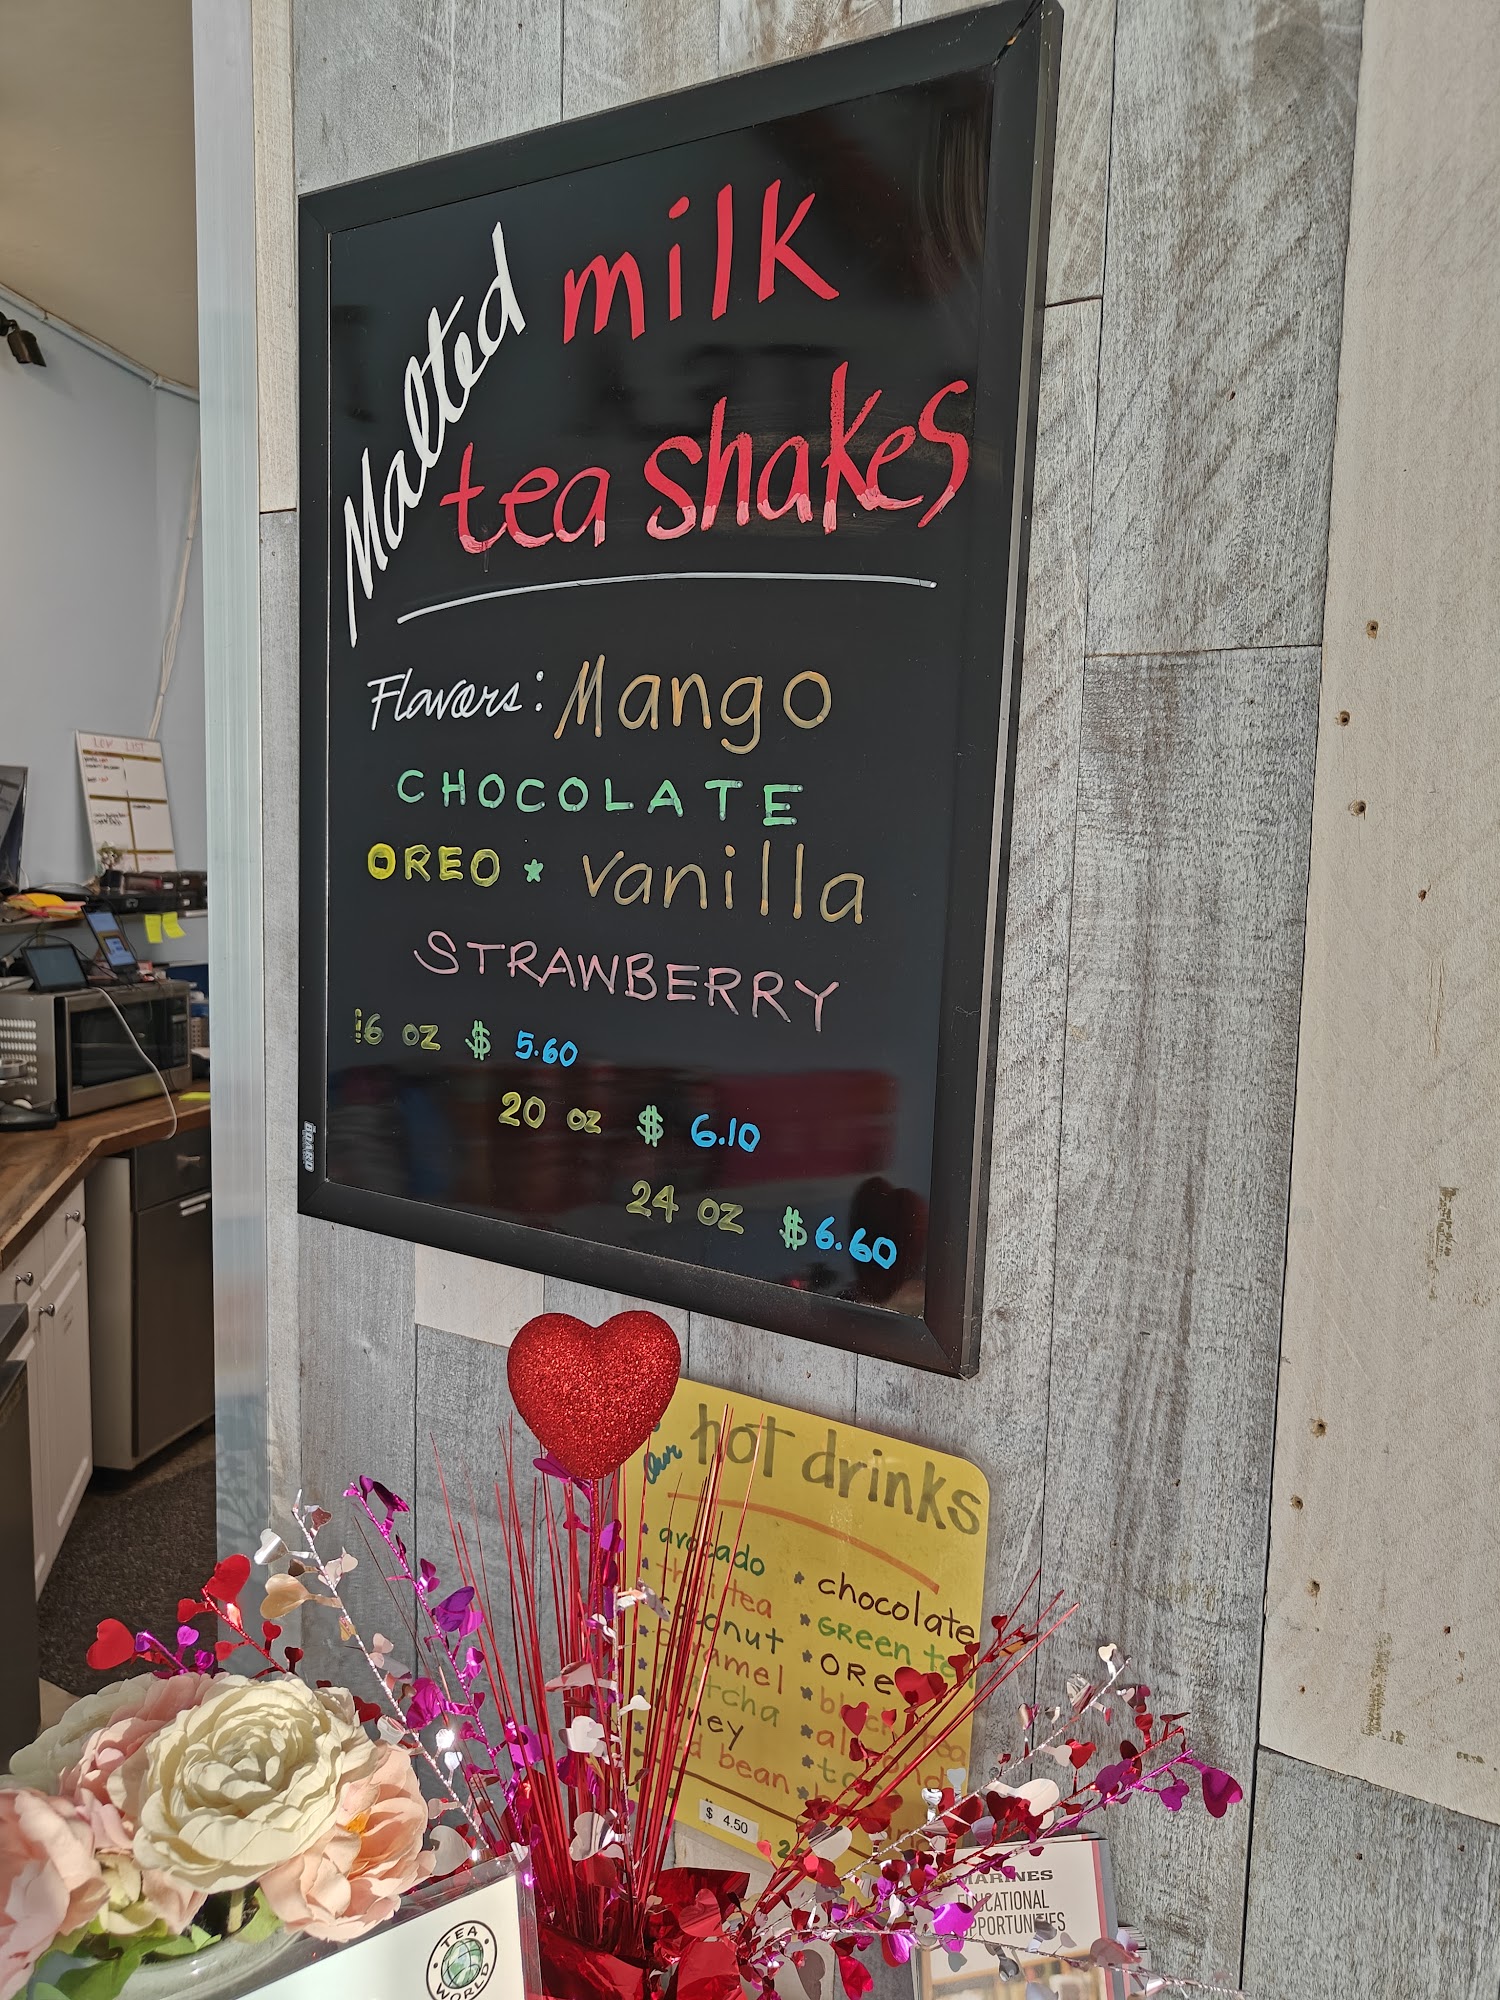 Malted milk
tea shakes
Flavors: Mango
CHOCOLATE
OREO * vanilla
STRAWBERRY
16 oz $ 5.60
20 oz $ 6.10
24 oz $ 6.60
BOARD
LOW LIST
Our hot drinks
avocado
thai tea
coconut
caramel
matcha
honey
red bean
chocolate
GREEN tea
ORE
$ 4.50
MARINES
EDUCATIONAL
OPPORTUNITIES
TEA
WORLD